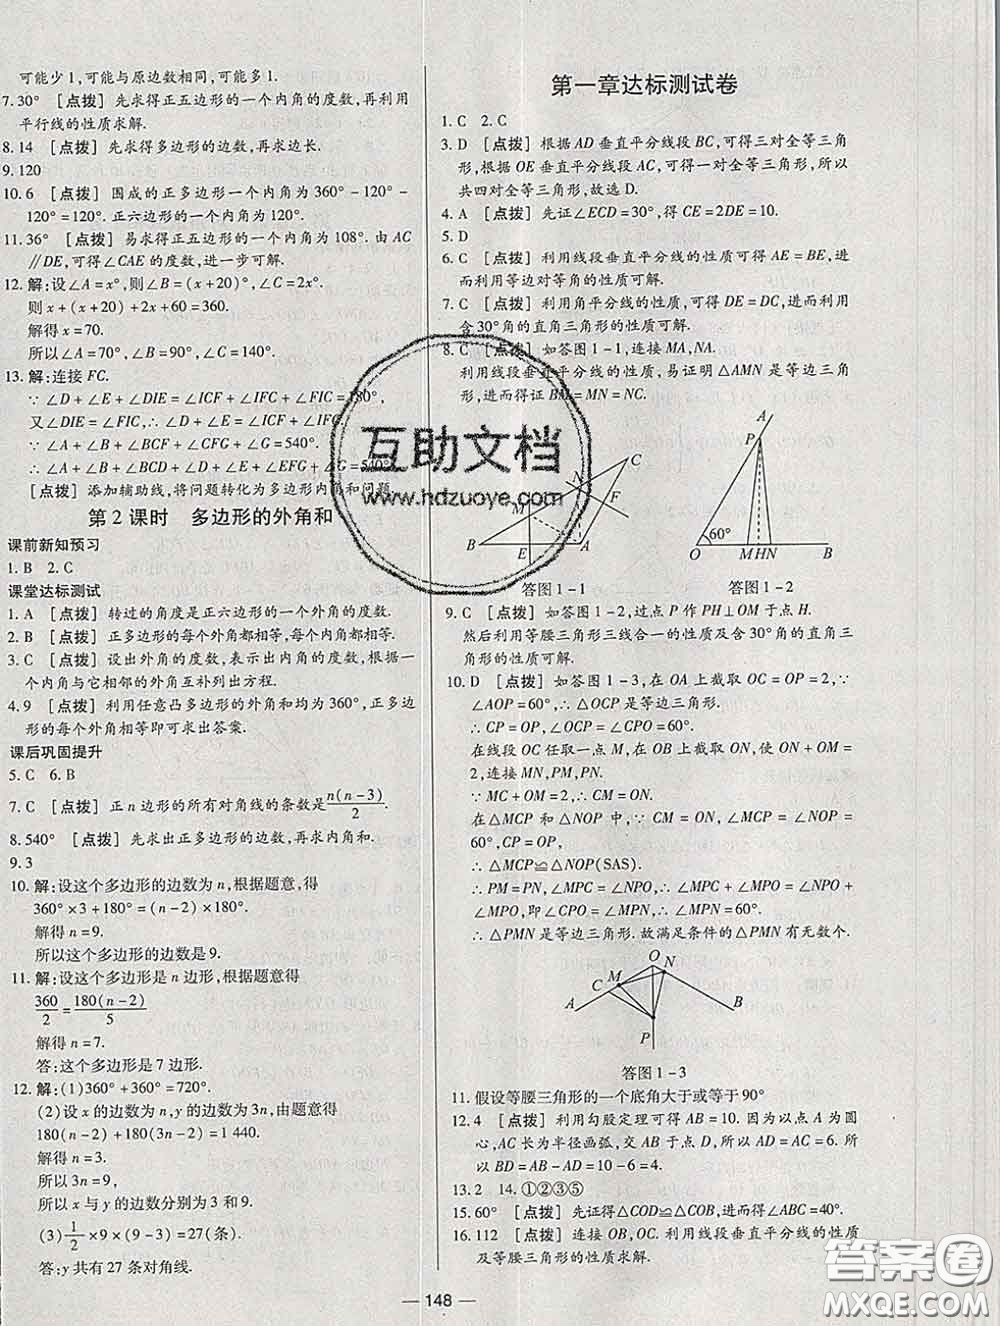 可能少1,可能与原边数相同,可能多1.
7.30° [点拨] 先求得正五边形的一个内角的度数,再利用
平行线的性质求解.
8.14 [点拨] 先求得多边形的边数,再求边长.
9.120
10.6 [点拨] 围成的正多边形一个内角为360°-120°-
120°=120°.正六边形的一个内角为120°.
11.36° [点拨] 易求得正五边形的一个内角为108°.由AC
∥DE,可得∠CAE的度数,进一步可解.
12.解:设∠A=x°,则∠B=(x+20)°,∠C=2x°.
则x+(x+20)+2x+60=360.
解得x=70.
所以∠A=70°,∠B=90°,∠C=140°.
13.解:连接FC.
∵∠D+∠E+∠DIE=∠ICF+∠IFC+∠FIC=180°,
又∠DIE=∠FIC,∴∠D+∠E=∠ICF+∠IFC.
∵∠A+∠B+∠BCF+∠CFG+∠G=540°.
∴∠A+∠B+∠BCD+∠D+∠E+∠EFG+∠G=540°.
[点拨] 添加辅助线,将问题转化为多边形内角和问题.
第2课时 多边形的外角和
课前新知预习
1.B 2.C
课堂达标测试
1.A [点拨] 转过的角度是正六边形的一个外角的度数.
2.B [点拨] 正多边形的每个外角都相等,每个内角都相等.
3.C [点拨] 设出外角的度数,表示出内角的度数,根据一
个内角与它相邻的外角互补列出方程.
4.9 [点拨] 利用任意凸多边形的外角和均为360°,正多边
形的每个外角相等即可求出答案.
课后巩固提升
5.C 6.B
7.C [点拨] 正n边形的所有对角线的条数是n(n-3)/2.
8.540° [点拨] 先求出正多边形的边数,再求内角和.
9.3
10.解:设这个多边形的边数为n,根据题意,得
360°×3+180°=(n-2)×180°.
解得n=9.
所以这个多边形的边数是9.
11.解:设这个多边形是n边形,根据题意得
360/2=180(n-2)/5
解得n=7.
答:这个多边形是7边形.
12.解:(1)360°+360°=720°.
(2)设x的边数为n,y的边数为3n,由题意得
180(n-2)+180(3n-2)=1 440.
解得n=3.
所以3n=9,
所以x与y的边数分别为3和9.
(3)1/2×9×(9-3)=27(条).
答:y共有27条对角线.
第一章达标测试卷
1.C 2.C
3.D [点拨] 根据AD垂直平分线段BC,可得三对全等三角
形,根据OE垂直平分线段AC,可得一对全等三角形,所以
共四对全等三角形,故选D.
4.A [点拨] 先证∠ECD=30°,得CE=2DE=10.
5.D
6.C [点拨] 利用线段垂直平分线的性质可得AE=BE,进
而利用等边对等角的性质可解.
7.C [点拨] 利用角平分线的性质,可得DE=DC,进而利用
含30°角的直角三角形的性质可解.
8.C [点拨] 如答图1-1,连接MA,NA.
利用线段垂直平分线的性质,易证明△AMN是等边三角
形,进而得证BM=MN=NC.
B E A M N F C
答图1-1
A P 60° O M H N B
答图1-2
9.C [点拨] 如答图1-2,过点P作PH⊥OM于点H.
然后利用等腰三角形三线合一的性质及含30°角的直角三
角形的性质可解.
10.D [点拨] 如答图1-3,在OA上截取OC=OP=2,∵
∠AOP=60°,∴△OCP是等边三角形.
∴CP=OP,∠OCP=∠CPO=60°.
在线段OC任取一点M,在OB上截取ON,使MO+ON=
2,连接MN,PM,PN.
∵MC+OM=2,∴CM=ON.
在△MCP和△NOP中,∵CM=ON,∠MCP=∠NOP=
60°,CP=OP,
∴△MCP≌△NOP(SAS).
∴PM=PN,∠MPC=∠NPO,∴∠MPC+∠MPO=∠NPO+
∠MPO,即∠CPO=∠MPN=60°.
∴△PMN是等边三角形.故满足条件的△PMN有无数个.
A C M O N B P
答图1-3
11.假设等腰三角形的一个底角大于或等于90°
12.4 [点拨] 利用勾股定理可得AB=10.因为以点A为圆
心,AC长为半径画弧,交AB于点D,所以AD=AC=6.所
以BD=AB-AD=10-6=4.
13.2 14.①②③⑤
15.60° [点拨] 先证得△COD≌△COB,进而得∠ABC=40°.
16.112 [点拨] 连接OB,OC.利用线段垂直平分线的性质
及等腰三角形的性质求解.
— 148 —
互助文档
www.hdzuoye.com
答案圈
MXQE.COM